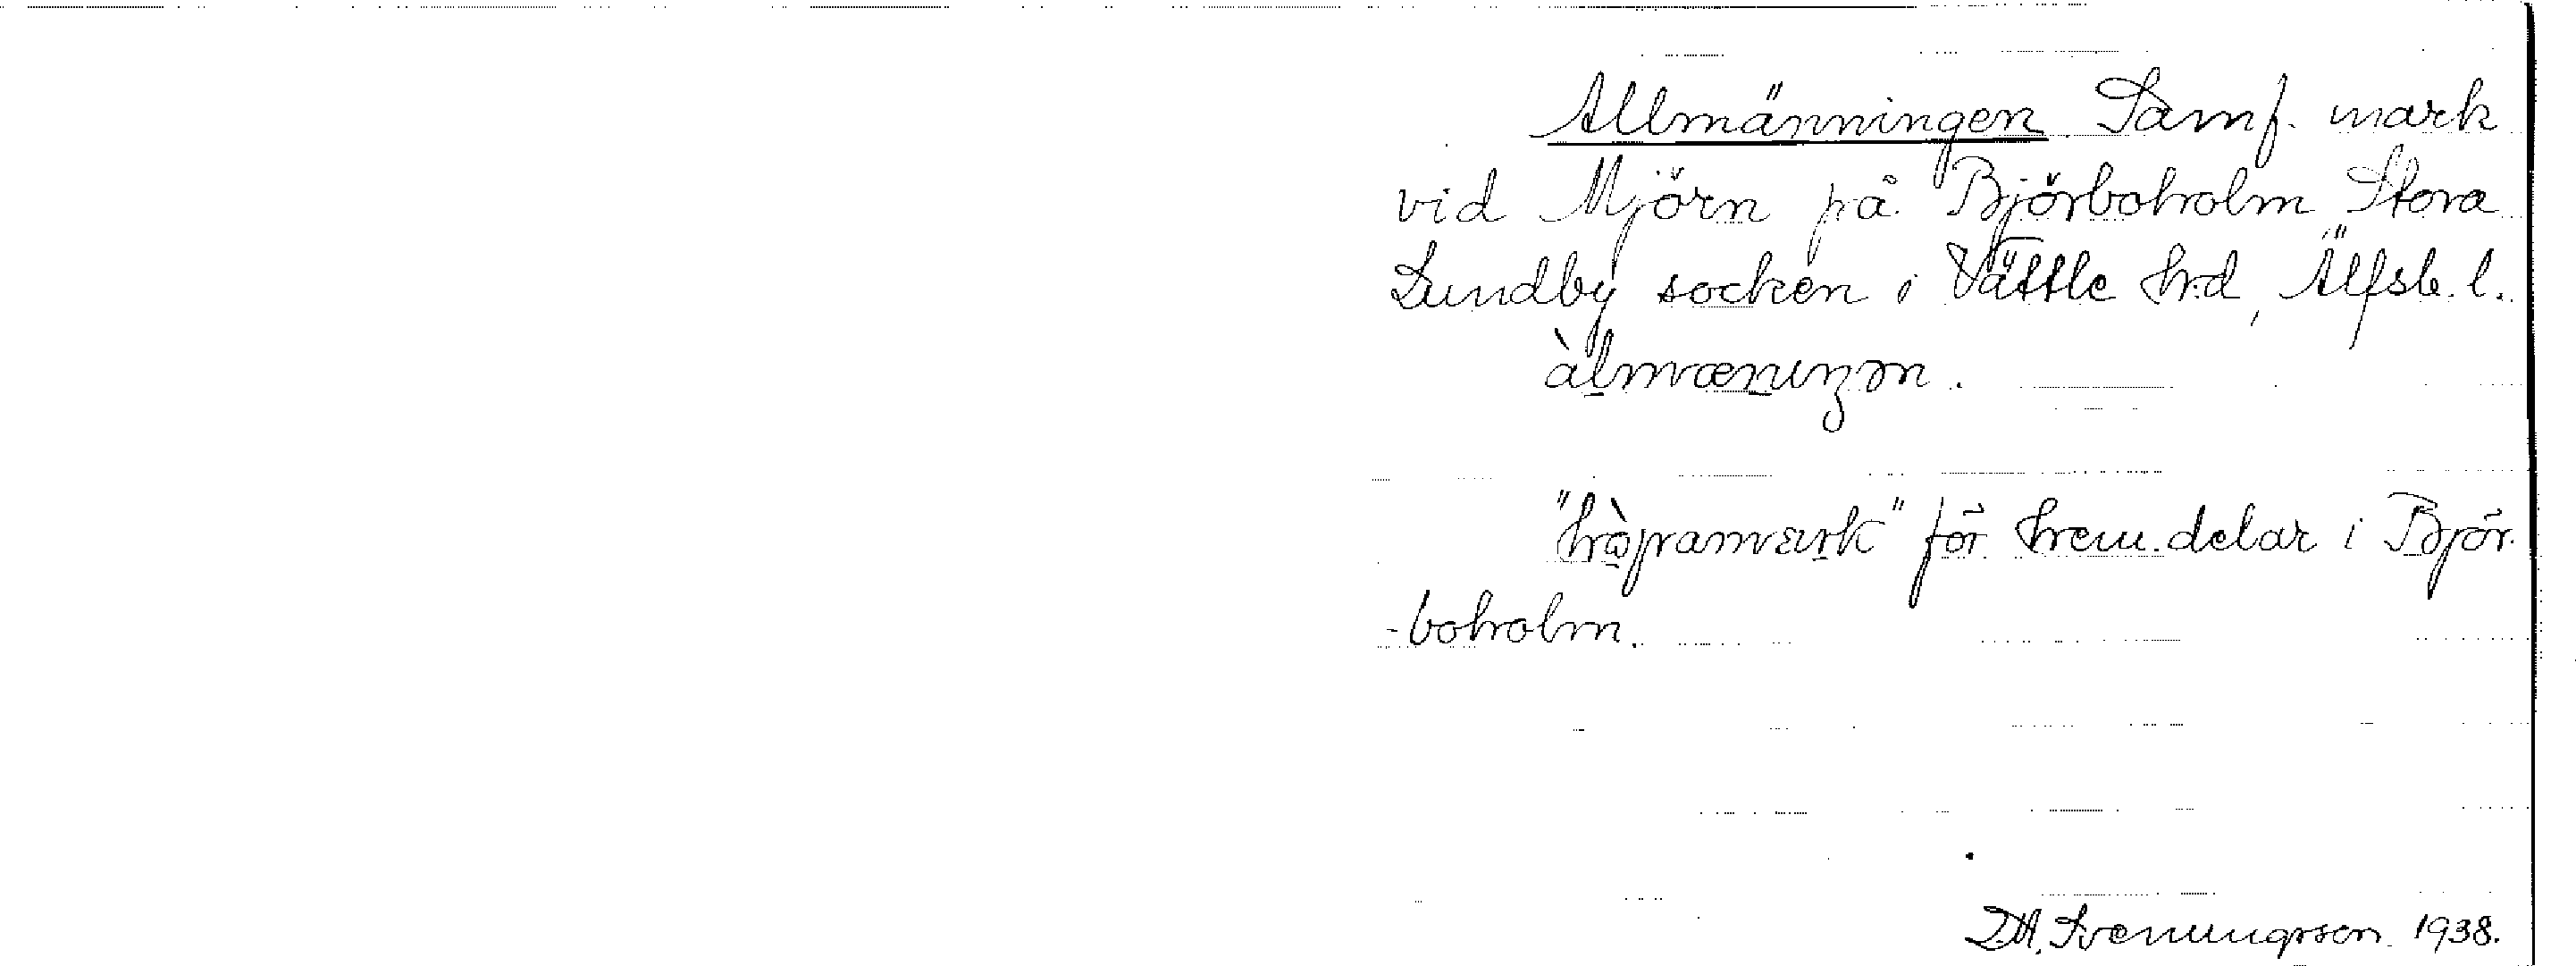 Allmänningen. Samf. mark
vid Mjörn på Björboholm Stora
Lundby socken i Vättle hd, Älfsb. l.
àlmæniŋən.
"hòpamark" för hem.delar i Björ-
-boholm.
Sveningsson 1938.